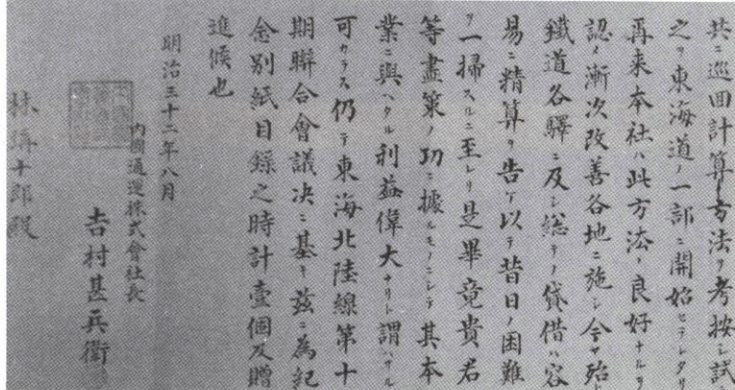 共ニ巡回計算ノ方法ヲ考按シ試
之ヲ東海道ノ一部ニ開始セラレタ
再来本社ハ此方法ノ良好ナルヲ
認メ漸次改善各地ニ施シ今ヤ殆
鐵道各驛ニ及シ総テノ貸借ハ容
易ニ精算ヲ告ケ以テ昔日ノ困難
ヲ一掃スルニ至レリ是畢竟貴君
等畫策ノ功ニ據ルモノニシテ其本
業ニ與ヘタル利益偉大ナリト謂ハサル
可カラス仍テ東海北陸線第十
期聯合會議决ニ基キ茲ニ為紀
念別紙目錄之時計壹個及贈
進候也
明治三十二年八月
内國通運株式會社長
吉村甚兵衛
林 十郎殿